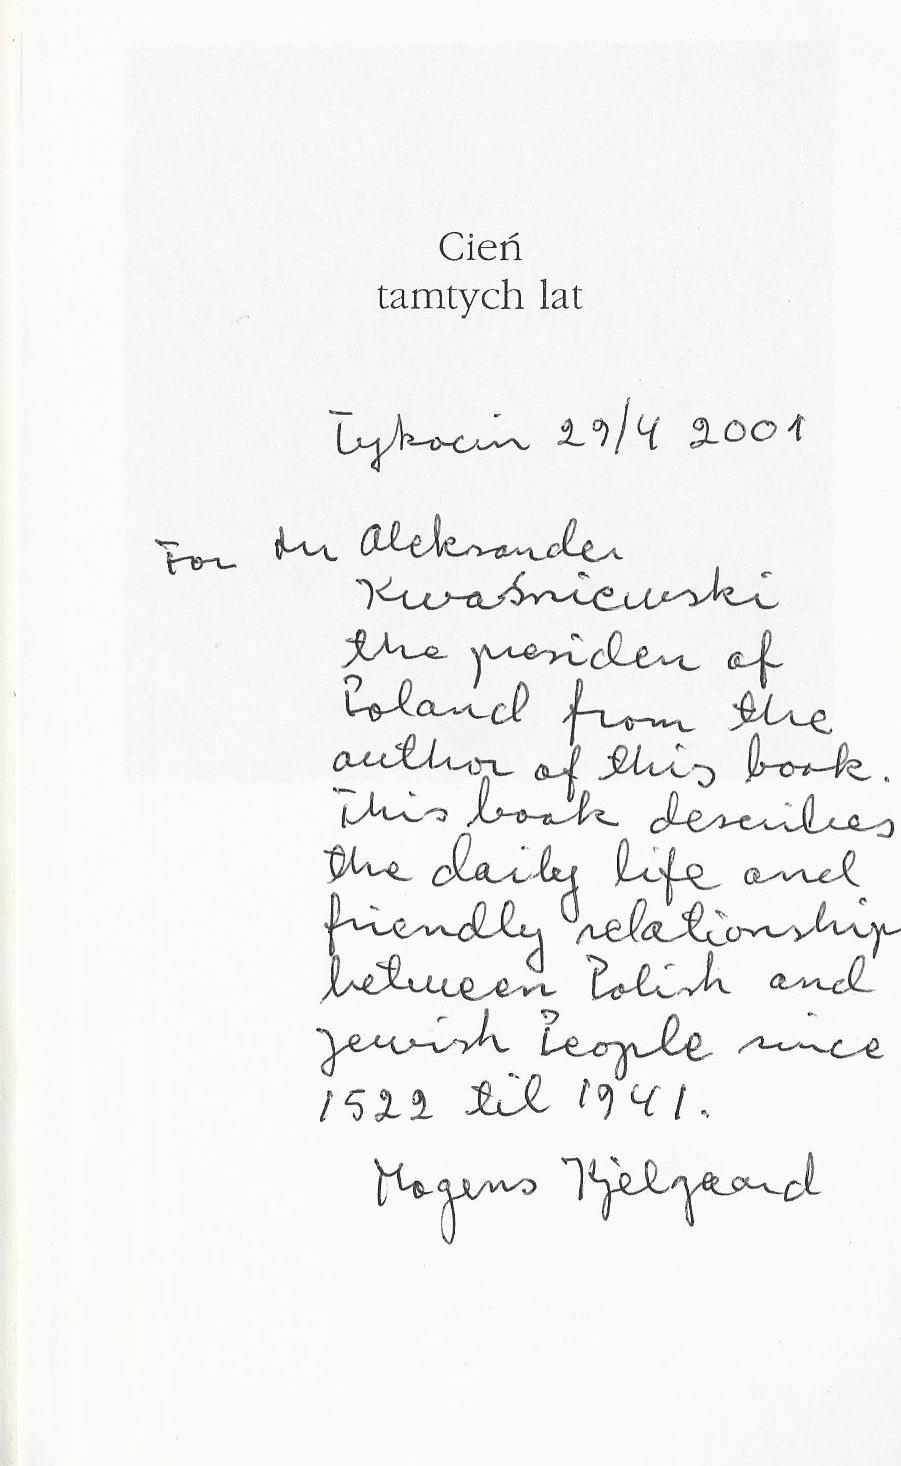 Cień
tamtych lat
Tykocin 29/4 2001
For Mr Aleksander
Kwaśniewski
the presiden of
Poland from the
author of this book.
This book describes
the daily life and
friendly relationship
between Polish and
Jewish People since
1522 til 1941.
Mogens Kjelgaard